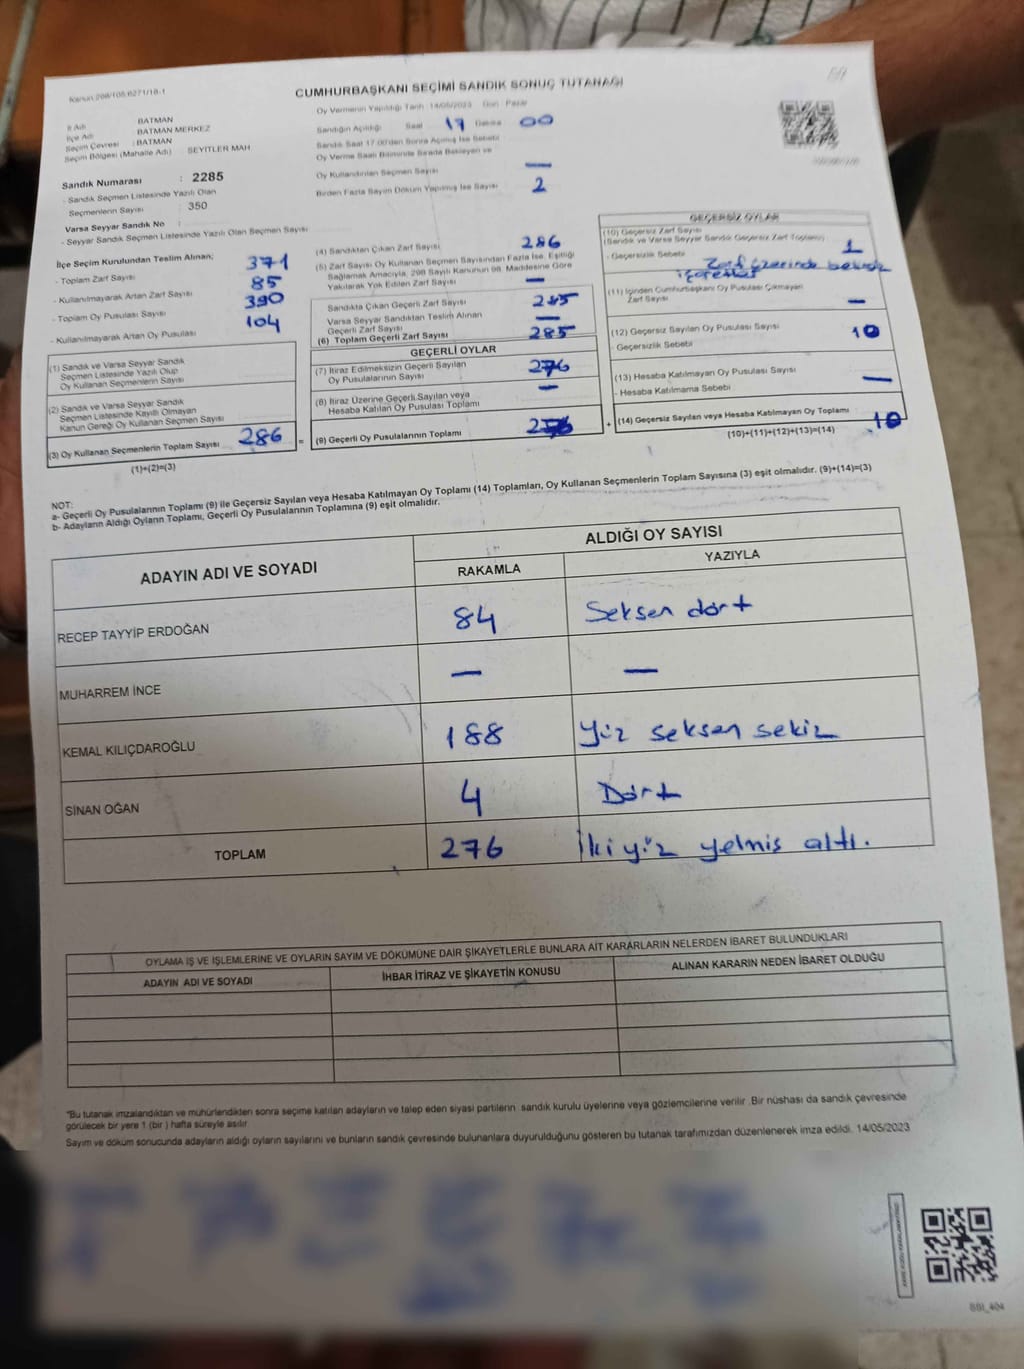 CUMHURBAŞKANI SEÇİMİ SANDIK SONUÇ TUTANAĞI
Oy Vermenin Yapıldığı Tarih 14/05/2023 Gün Pazar
İl Adı BATMAN
İlçe Adı BATMAN MERKEZ
Seçim Çevresi : BATMAN
Seçim Bölgesi (Mahalle Adı) SEYİTLER MAH
Sandık Numarası : 2285
- Sandık Seçmen Listesinde Yazılı Olan
Seçmenlerin Sayısı : 350
Varsa Seyyar Sandık No :
- Seyyar Sandık Seçmen Listesinde Yazılı Olan Seçmen Sayısı
Sandığın Açıldığı Saat 17 Dakika 00
Sandık Saat 17.00'den Sonra Açılmış İse Sebebi
Oy Verme Saati Bitiminde Sırada Bekleyen ve
Oy Kullandırılan Seçmen Sayısı —
Birden Fazla Sayım Döküm Yapılmış İse Sayısı 2
İlçe Seçim Kurulundan Teslim Alınan;
- Toplam Zarf Sayısı 371
- Kullanılmayarak Artan Zarf Sayısı 85
- Toplam Oy Pusulası Sayısı 390
- Kullanılmayarak Artan Oy Pusulası 104
(1) Sandık ve Varsa Seyyar Sandık
Seçmen Listesinde Yazılı Olup
Oy Kullanan Seçmenlerin Sayısı
(2) Sandık ve Varsa Seyyar Sandık
Seçmen Listesinde Kayıtlı Olmayan
Kanun Gereği Oy Kullanan Seçmen Sayısı
(3) Oy Kullanan Seçmenlerin Toplam Sayısı 286
(1)+(2)=(3)
(4) Sandıktan Çıkan Zarf Sayısı 286
(5) Zarf Sayısı Oy Kullanan Seçmen Sayısından Fazla İse, Eşitliği
Sağlamak Amacıyla, 298 Sayılı Kanunun 98. Maddesine Göre
Yakılarak Yok Edilen Zarf Sayısı —
Sandıkta Çıkan Geçerli Zarf Sayısı 285
Varsa Seyyar Sandıktan Teslim Alınan
Geçerli Zarf Sayısı —
(6) Toplam Geçerli Zarf Sayısı 285
GEÇERLİ OYLAR
(7) İtiraz Edilmeksizin Geçerli Sayılan
Oy Pusulalarının Sayısı 276
(8) İtiraz Üzerine Geçerli Sayılan veya
Hesaba Katılan Oy Pusulası Toplamı —
= (9) Geçerli Oy Pusulalarının Toplamı 276 +
GEÇERSİZ OYLAR
(10) Geçersiz Zarf Sayısı
(Sandık ve Varsa Seyyar Sandık Geçersiz Zarf Toplamı) 1
- Geçersizlik Sebebi Zarf üzerinde
(11) İçinden Cumhurbaşkanı Oy Pusulası Çıkmayan
Zarf Sayısı —
(12) Geçersiz Sayılan Oy Pusulası Sayısı 10
- Geçersizlik Sebebi
(13) Hesaba Katılmayan Oy Pusulası Sayısı
- Hesaba Katılmama Sebebi —
(14) Geçersiz Sayılan veya Hesaba Katılmayan Oy Toplamı 10
(10)+(11)+(12)+(13)=(14)
NOT:
a- Geçerli Oy Pusulalarının Toplamı (9) ile Geçersiz Sayılan veya Hesaba Katılmayan Oy Toplamı (14) Toplamları, Oy Kullanan Seçmenlerin Toplam Sayısına (3) eşit olmalıdır. (9)+(14)=(3)
b- Adayların Aldığı Oyların Toplamı, Geçerli Oy Pusulalarının Toplamına (9) eşit olmalıdır.
ADAYIN ADI VE SOYADI
ALDIĞI OY SAYISI
RAKAMLA YAZIYLA
RECEP TAYYİP ERDOĞAN 84 Seksen dört
MUHARREM İNCE — —
KEMAL KILIÇDAROĞLU 188 Yüz seksen sekiz
SİNAN OĞAN 4 Dört
TOPLAM 276 İkiyüz yetmiş altı.
OYLAMA İŞ VE İŞLEMLERİNE VE OYLARIN SAYIM VE DÖKÜMÜNE DAİR ŞİKAYETLERLE BUNLARA AİT KARARLARIN NELERDEN İBARET BULUNDUKLARI
ADAYIN ADI VE SOYADI İHBAR İTİRAZ VE ŞİKAYETİN KONUSU ALINAN KARARIN NEDEN İBARET OLDUĞU
*Bu tutanak imzalandıktan ve mühürlendikten sonra seçime katılan adayların ve talep eden siyasi partilerin sandık kurulu üyelerine veya gözlemcilerine verilir. Bir nüshası da sandık çevresinde
görülecek bir yere 1 (bir ) hafta süreyle asılır.
Sayım ve döküm sonucunda adayların aldığı oyların sayılarını ve bunların sandık çevresinde bulunanlara duyurulduğunu gösteren bu tutanak tarafımızdan düzenlenerek imza edildi. 14/05/2023
BBI_404